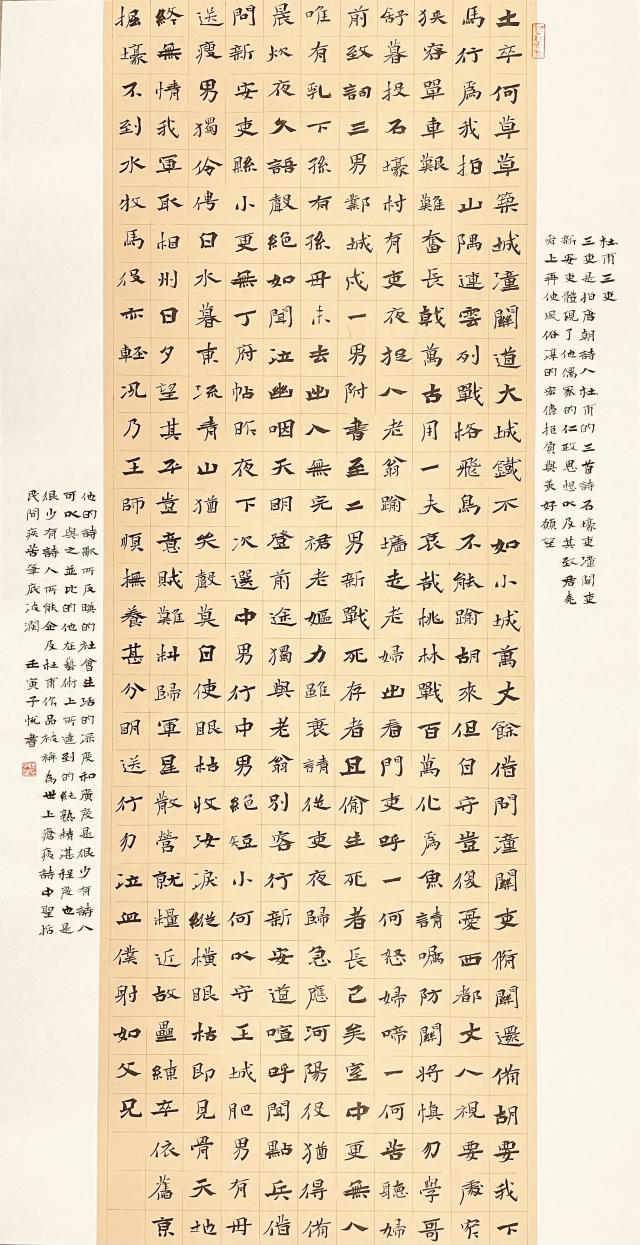 杜甫三吏
三吏是指唐朝詩人杜甫的三首詩石壕吏潼關吏
新安吏體現了他儒家的仁政思想以及其致君堯
舜上再使風俗淳的宏偉抱負與美好願望
士卒何草草築城潼關道大城鐵不如小城萬丈餘借問潼關吏脩關還備胡要我下
馬行為我指山隅連雲列戰格飛鳥不能踰胡來但自守豈復憂西都丈人視要處窄
狹容單車艱難奮長戟萬古用一夫哀哉桃林戰百萬化為魚請囑防關將慎勿學哥
舒暮投石壕村有吏夜捉人老翁踰墻走老婦出看門吏呼一何怒婦啼一何苦聽婦
前致詞三男鄴城戍一男附書至二男新戰死存者且偷生死者長已矣室中更無人
唯有乳下孫有孫母未去出入無完裙老嫗力雖衰請從吏夜歸急應河陽役猶得備
晨炊夜久語聲絕如聞泣幽咽天明登前途獨與老翁別客行新安道喧呼聞點兵借
問新安吏縣小更無丁府帖昨夜下次選中男行中男絕短小何以守王城肥男有母
送瘦男獨伶俜白水暮東流青山猶哭聲莫自使眼枯收汝淚縱橫眼枯即見骨天地
終無情我軍取相州日夕望其平豈意賊難料歸軍星散營就糧近故壘練卒依舊京
掘壕不到水牧馬役亦輕況乃王師順撫養甚分明送行勿泣血僕射如父兄
他的詩歌所反映的社會生活的深度和廣度是很少有詩人
可以與之並比的他在藝術上所達到的純熟精湛程度也是
很少有詩人所能企及杜甫作品被稱為世上瘡痍詩中聖哲
民間疾苦筆底波瀾 壬寅子悅書